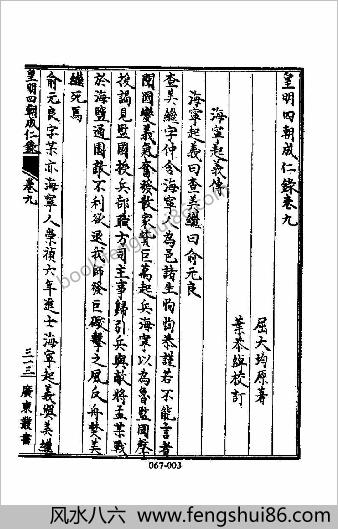 皇明四朝成仁錄卷九
屈大均原著
葉恭綽校訂
海寧起義傳
海寧起義曰查美繼曰俞元良
查美繼字仲含海寧人為邑諸生恂恂恭謹若不能言者
聞國變義氣奮發散家貲巨萬起兵海寧以為魯監國聲
援謁見監國授兵部職方司主事歸引兵與敵將孟某戰
於海鹽通圍難不利欲退我師發巨礮擊之風反舟燬美
繼死焉
俞元良字某亦海寧人崇禎六年進士海寧起義與美繼
皇明四朝成仁錄
卷九
三一三
廣東叢書
067-003
booktangshu86.com
风水八六-www.fengshui86.com